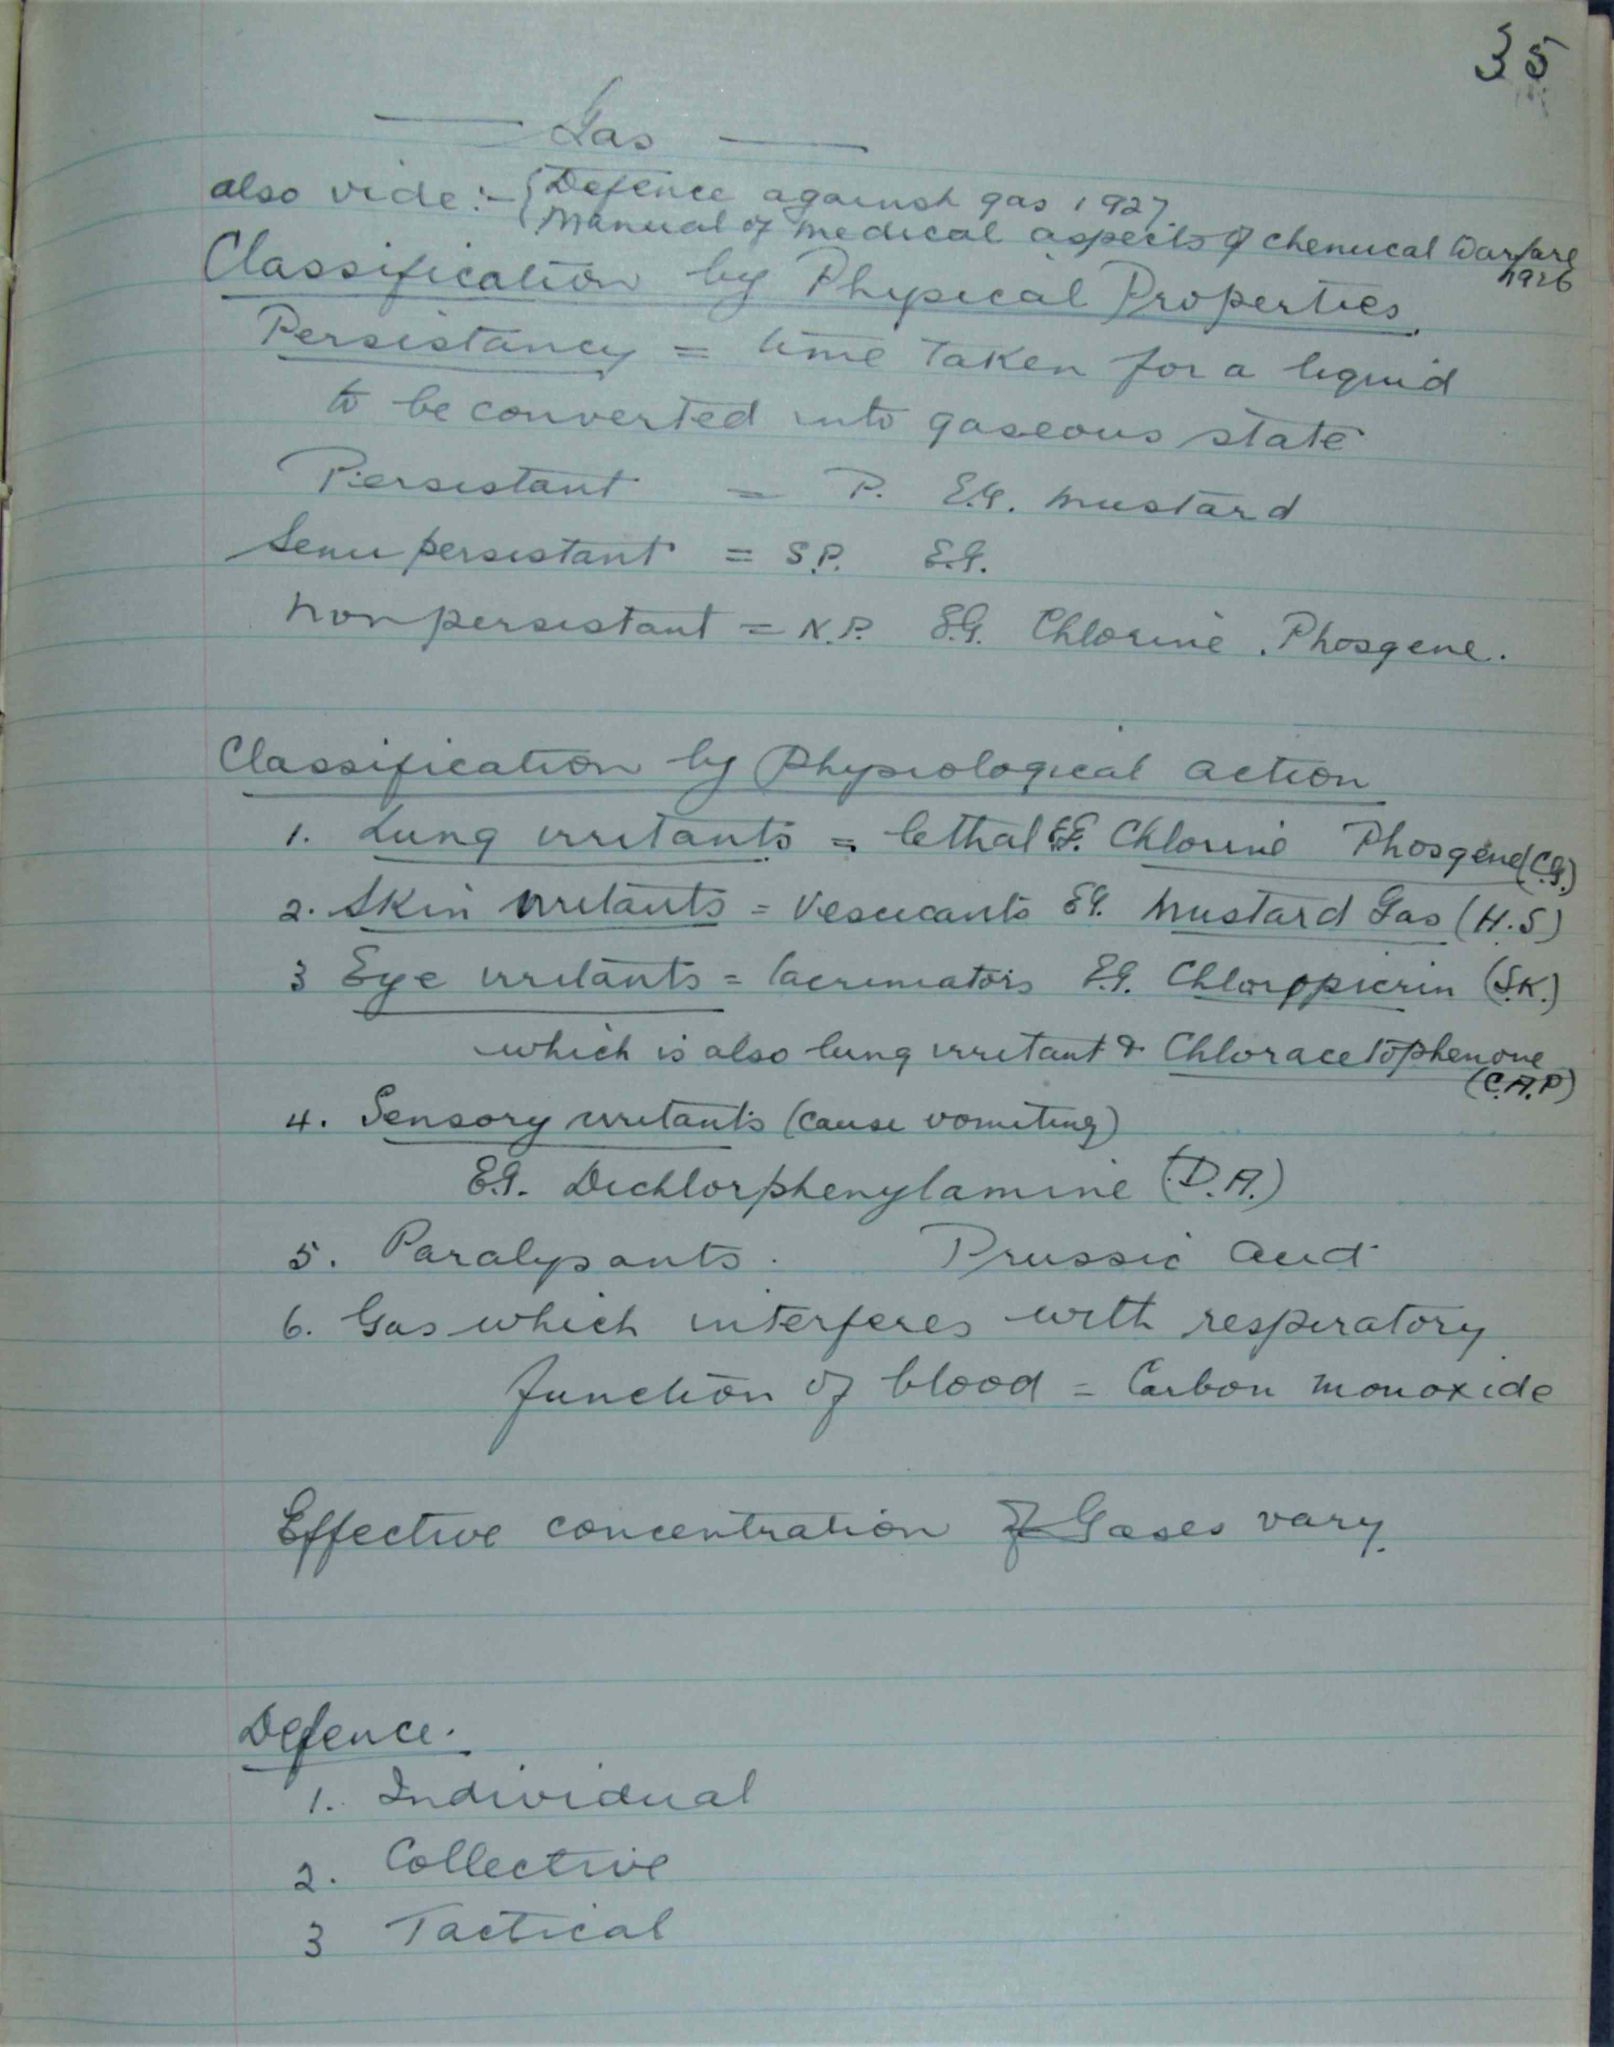 35
Gas
also vide :- { Defence against gas 1927
Manual of medical aspects of chemical Warfare
1926
Classification by Physical Properties.
Persistancy = time Taken for a liquid
to be converted into gaseous state
Persistant = P. E.G. Mustard
Semi persistant = S.P. E.G.
Non persistant = N.P. E.G. Chlorine. Phosgene.
Classification by Physiological action
1. Lung irritants = lethal E.G. Chlorine Phosgene (C.G.)
2. Skin irritants = Vesicants E.G. Mustard Gas (H.S)
3 Eye irritants = lacrimators E.G. Chlorppicrin (S.K.)
which is also lung irritant & Chloracetophenone
(C.A.P)
4. Sensory irritants (cause vomiting)
E.G. Dichlorphenylamine (D.A.)
5. Paralysants. Prussic acid
6. Gas which interferes with respiratory
function of blood = Carbon monoxide
Effective concentration of Gases vary.
Defence.
1. Individual
2. Collective
3 Tactical